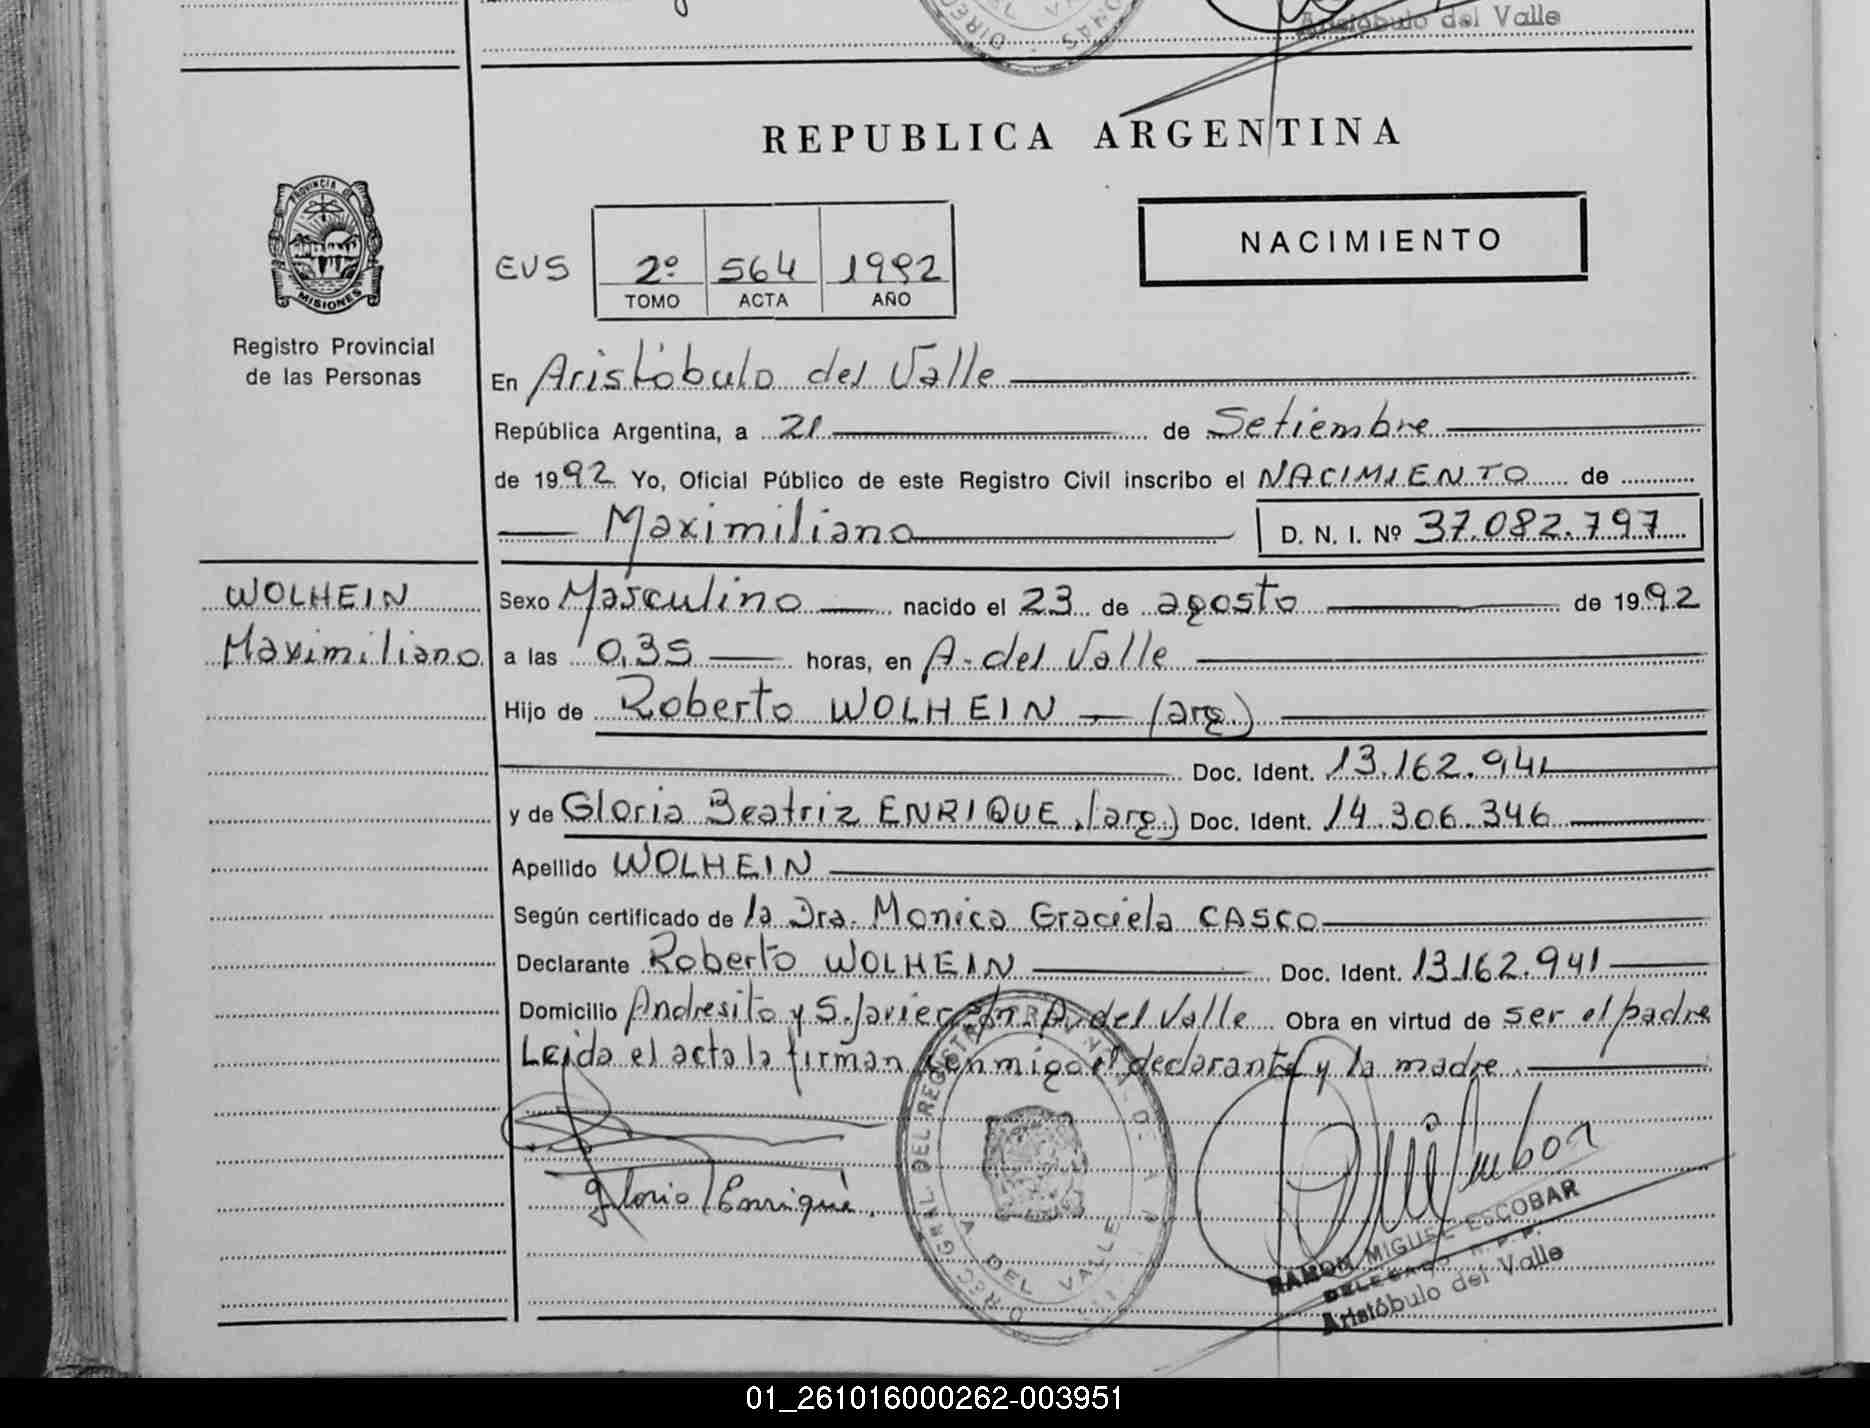 Aristóbulo del Valle
REPUBLICA ARGENTINA
PROVINCIA DE
MISIONES
Registro Provincial
de las Personas
NACIMIENTO
EVS 2º 564 1992
TOMO ACTA AÑO
En Aristóbulo del Valle
República Argentina, a 21 de Setiembre
de 1992 Yo, Oficial Público de este Registro Civil inscribo el NACIMIENTO de
Maximiliano D. N. I. Nº 37.082.797
WOLHEIN
Maximiliano
Sexo Masculino nacido el 23 de agosto de 1992
a las 0,35 horas, en A. del Valle
Hijo de Roberto WOLHEIN (arg.)
Doc. Ident. 13.162.941
y de Gloria Beatriz ENRIQUE (arg.) Doc. Ident. 14.306.346
Apellido WOLHEIN
Según certificado de la Dra. Monica Graciela CASCO
Declarante Roberto WOLHEIN Doc. Ident. 13.162.941
Domicilio Andresito y S. Javier A. del Valle Obra en virtud de ser el padre
Leida el acta la firman conmigo el declarante y la madre.
Gloria Enrique.
RAMON MIGUEL ESCOBAR
DELEGADO R. P. P.
Aristóbulo del Valle
A DEL VALLE
01_261016000262-003951